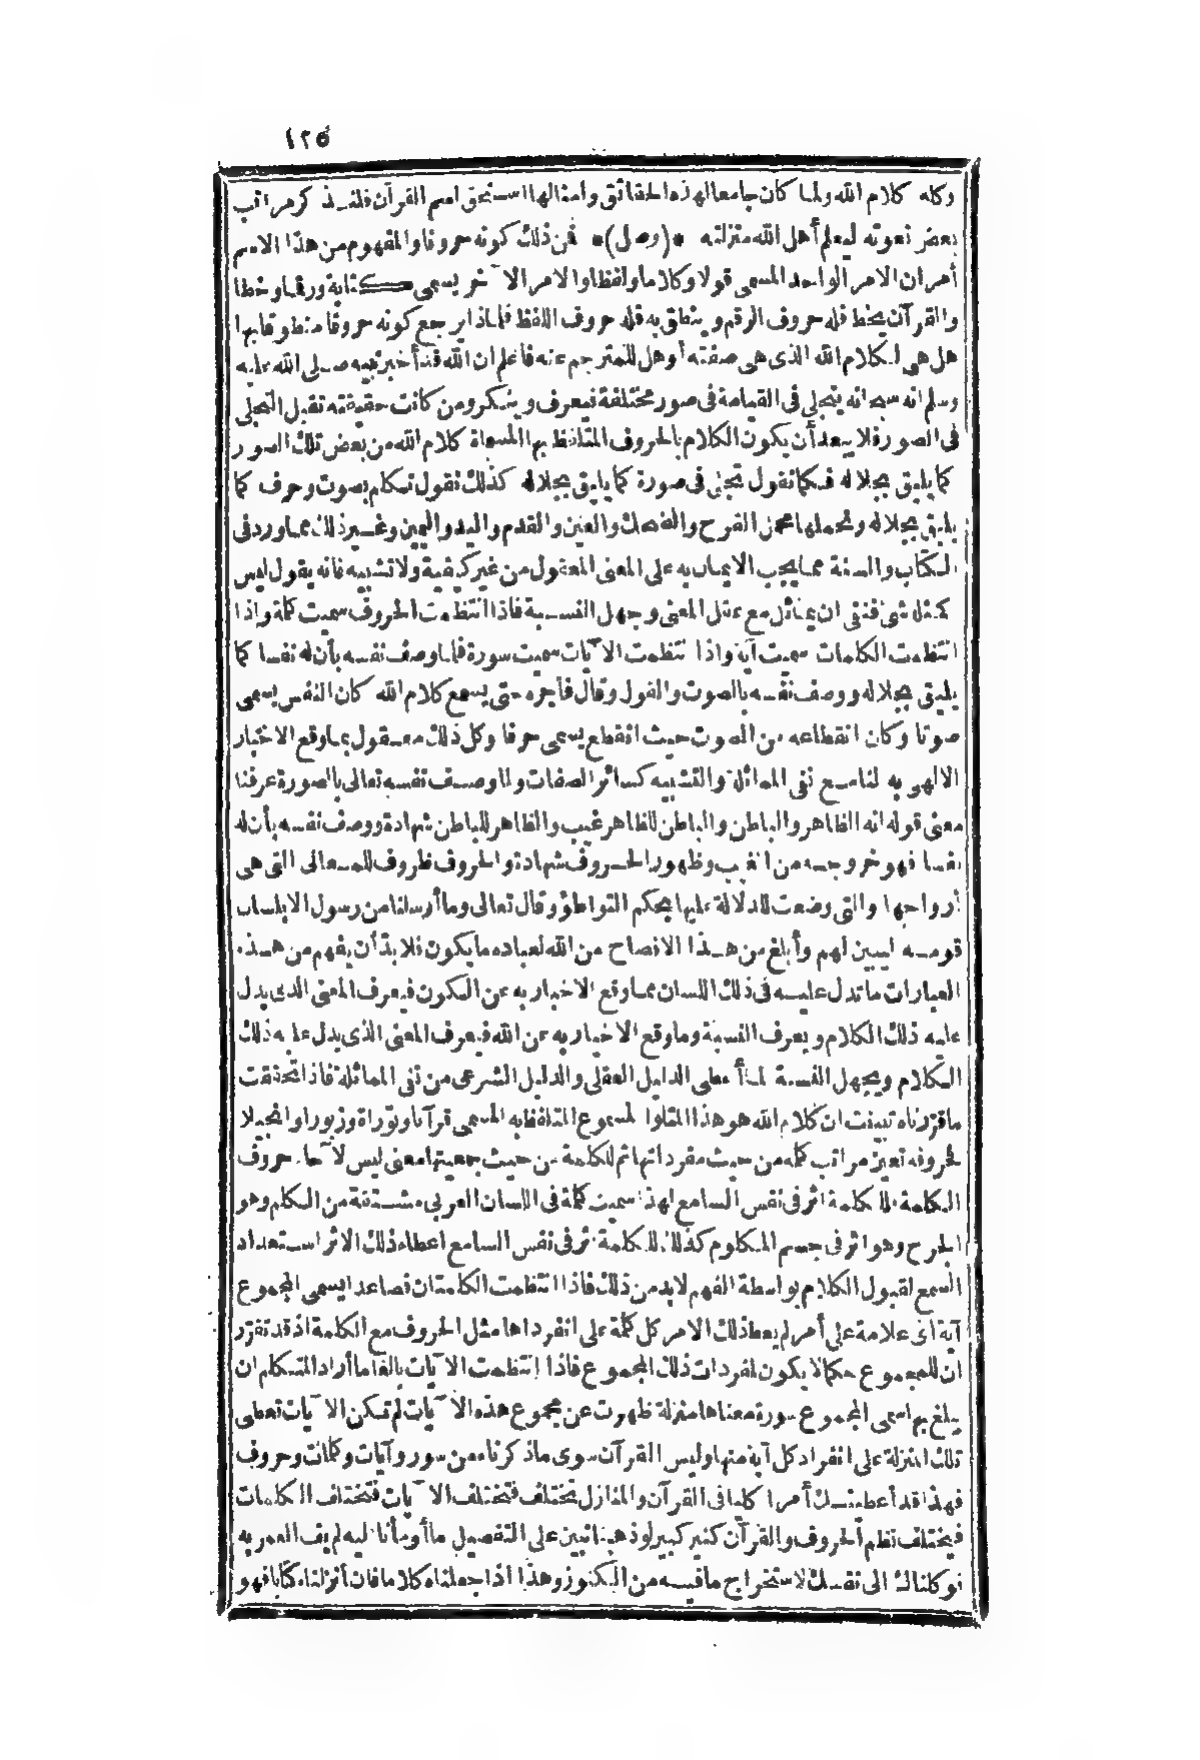 ١٢٥
وكله كلام الله ولما كان جامعا لهذه الحقائق وأمثالها استحق اسم القرآن فلنذكر مراتب
بعض نعوته ليعلم أهل الله منزلته *(وصل)* فمن ذلك كونه حروفا والمفهوم من هذا الاسم
أمران الامر الواحد المسمى قولا وكلاما ولفظا والامر الآخر يسمى كتابة ورقما وخطا
والقرآن يخط فله حروف الرقم وينطق به فله حروف اللفظ فلماذا يرجع كونه حروفا منطوقا بها
هل هي لكلام الله الذى هى صفته أو هل للمترجم عنه فاعلم ان الله قد أخبر نبيه صلى الله عليه
وسلم انه سبحانه يتجلى فى القيامة فى صور مختلفة فيعرف وينكر ومن كانت حقيقته تقبل التجلى
فى الصورة لا يبعد أن يكون الكلام بالحروف المتلفظ بها المسماة كلام الله من بعض تلك الصور
كما يليق بجلاله فكما نقول تجلى فى صورة كما يليق بجلاله كذلك نقول تكلم بصوت وحرف كما
يليق بجلاله ونحملها محمل الفرح والضحك والعين والقدم واليد واليمين وغير ذلك مما ورد فى
الكتاب والسنة مما يجب الايمان به على المعنى المعقول من غير كيفية ولا تشبيه فانه يقول ليس
كمثله شئ فنفى ان يماثل مع عقل المعنى وجهل النسبة فاذا انتظمت الحروف سميت كلمة واذا
انتظمت الكلمات سميت آية واذا انتظمت الآيات سميت سورة فلما وصف نفسه بأن له نفسا كما
يليق بجلاله ووصف نفسه بالصوت والقول وقال فأجره حتى يسمع كلام الله كان النفس يسمى
صوتا وكان انقطاعه من الصوت حيث انقطع يسمى حرفا وكل ذلك معقول بما وقع الاخبار
الالهى به لنا مع نفى المماثلة والتشبيه كسائر الصفات ولما وصف نفسه تعالى بالصورة عرفنا
معنى قوله انه الظاهر والباطن والباطن للظاهر غيب والظاهر للباطن شهادة ووصف نفسه بأن له
نفسا فهو خروجه من الغيب وظهور الحروف شهادة والحروف ظروف للمعانى التى هى
أرواحها والتى وضعت للدلالة عليها بحكم التواطؤ وقال تعالى وما أرسلنا من رسول الا بلسان
قومه ليبين لهم وأبلغ من هذا الافصاح من الله لعباده ما يكون فلا بد أن يفهم من هذه
العبارات ما تدل عليه فى ذلك اللسان مما وقع الاخبار به عن الكون فيعرف المعنى الذى يدل
عليه ذلك الكلام ويعرف النسبة وما وقع الاخبار به عن الله فيعرف المعنى الذى يدل عليه ذلك
الكلام ويجهل النسبة لما أعطى الدليل العقلى والدليل الشرعى من نفى المماثلة فاذا تحققت
ما قررناه تبينت ان كلام الله هو هذا المتلو المسموع المتلفظ به المسمى قرآنا وتوراة وزبورا وانجيلا
فحروفه تعين مراتب كلمه من حيث مفرداتها ثم للكلمة من حيث جمعيتها معنى ليس لآحاد حروف
الكلمة فللكلمة اثر فى نفس السامع لهذا سميت كلمة فى اللسان العربى مشتقة من الكلم وهو
الجرح وهو اثر فى جسم المكلوم كذلك للكلمة أثر فى نفس السامع اعطاه ذلك الاثر استعداد
السمع لقبول الكلام بواسطة الفهم لابد من ذلك فاذا انتظمت الكلمتان فصاعدا يسمى المجموع
آية أى علامة على أمر لم يعط ذلك الامر كل كلمة على انفرادها مثل الحروف مع الكلمة اذ قد تقرر
ان للمجموع حكما لا يكون لمفردات ذلك المجموع فاذا انتظمت الآيات بالغا ما أراد المتكلم ان
يبلغ بها سمى المجموع سورة معناها منزلة ظهرت عن مجموع هذه الآيات لم تكن الآيات تعطى
تلك المنزلة على انفراد كل آية منها وليس القرآن سوى ما ذكرناه من سور وآيات وكلمات وحروف
فهذا قد أعطيتك أمرا كليا فى القرآن والمنازل تختلف فتختلف الآيات فتختلف الكلمات
فيختلف نظم الحروف والقرآن كبير كثير لو ذهبنا نبين على التفصيل ما أومأنا اليه لم يف العمر به
فوكلناك الى نفسك لاستخراج ما فيه من الكنوز وهذا اذا جعلناه كلاما فان أنزلناه كتابا فهو